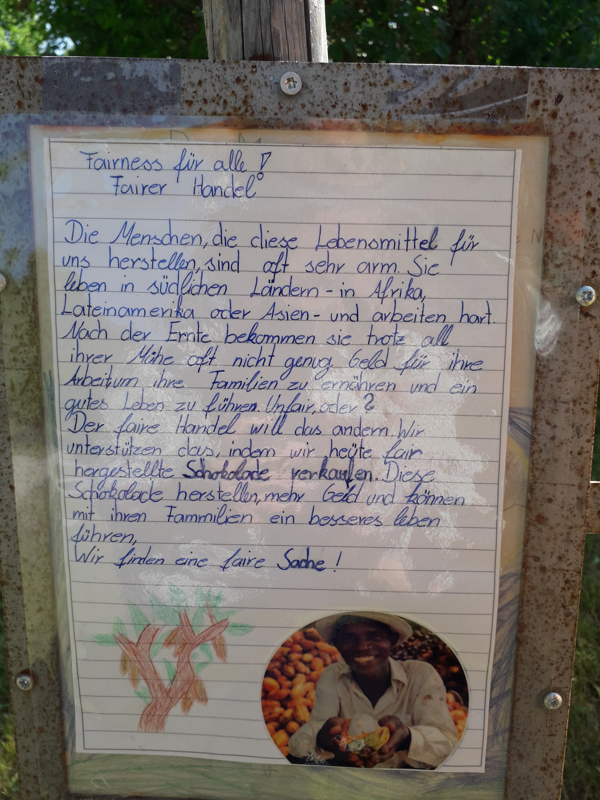 Fairness für alle!
Fairer Handel
Die Menschen, die diese Lebensmittel für
uns herstellen, sind oft sehr arm. Sie
leben in südlichen Ländern - in Afrika,
Lateinamerika oder Asien - und arbeiten hart.
Nach der Ernte bekommen sie trotz all
ihrer Mühe oft nicht genug Geld für ihre
Arbeit um ihre Familien zu ernähren und ein
gutes Leben zu führen. Unfair, oder?
Der faire Handel will das ändern. Wir
unterstützen das, indem wir heute fair
hergestellte Schokolade verkaufen. Diese
Schokolade herstellen, mehr Geld und können
mit ihren Fammilien ein besseres leben
führen,
Wir finden eine faire Sache!